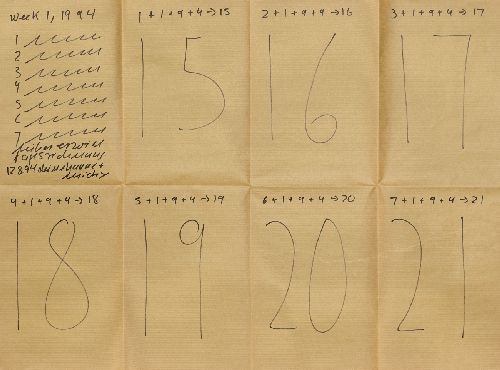 Week 1, 1994
1
2
3
4
5
6
7
1+1+9+4→15
15
2+1+9+4→16
16
3+1+9+4→17
17
4+1+9+4→18
18
5+1+9+4→19
19
6+1+9+4→20
20
7+1+9+4→21
21